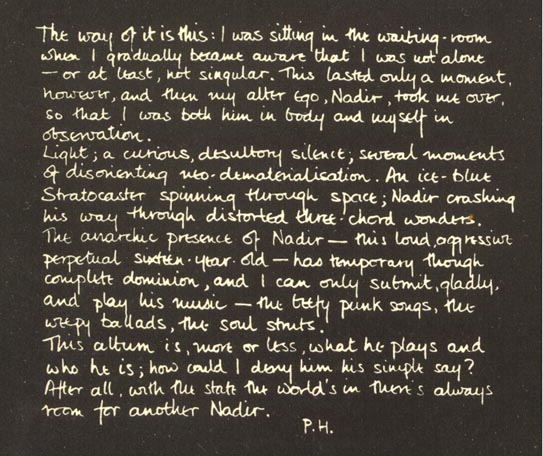 The way of it is this: I was sitting in the waiting-room
when I gradually became aware that I was not alone
— or at least, not singular. This lasted only a moment,
however, and then my alter ego, Nadir, took me over,
so that I was both him in body and myself in
observation.
Light; a curious, desultory silence; several moments
of disorienting neo-dematerialisation. An ice-blue
Stratocaster spinning through space; Nadir crashing
his way through distorted three-chord wonders.
The anarchic presence of Nadir — this loud, aggressive
perpetual sixteen-year-old — has temporary though
complete dominion, and I can only submit, gladly,
and play his music — the beefy punk songs, the
weepy ballads, the soul struts.
This album is, more or less, what he plays and
who he is; how could I deny him his simple say?
After all, with the state the world's in there's always
room for another Nadir.
P.H.